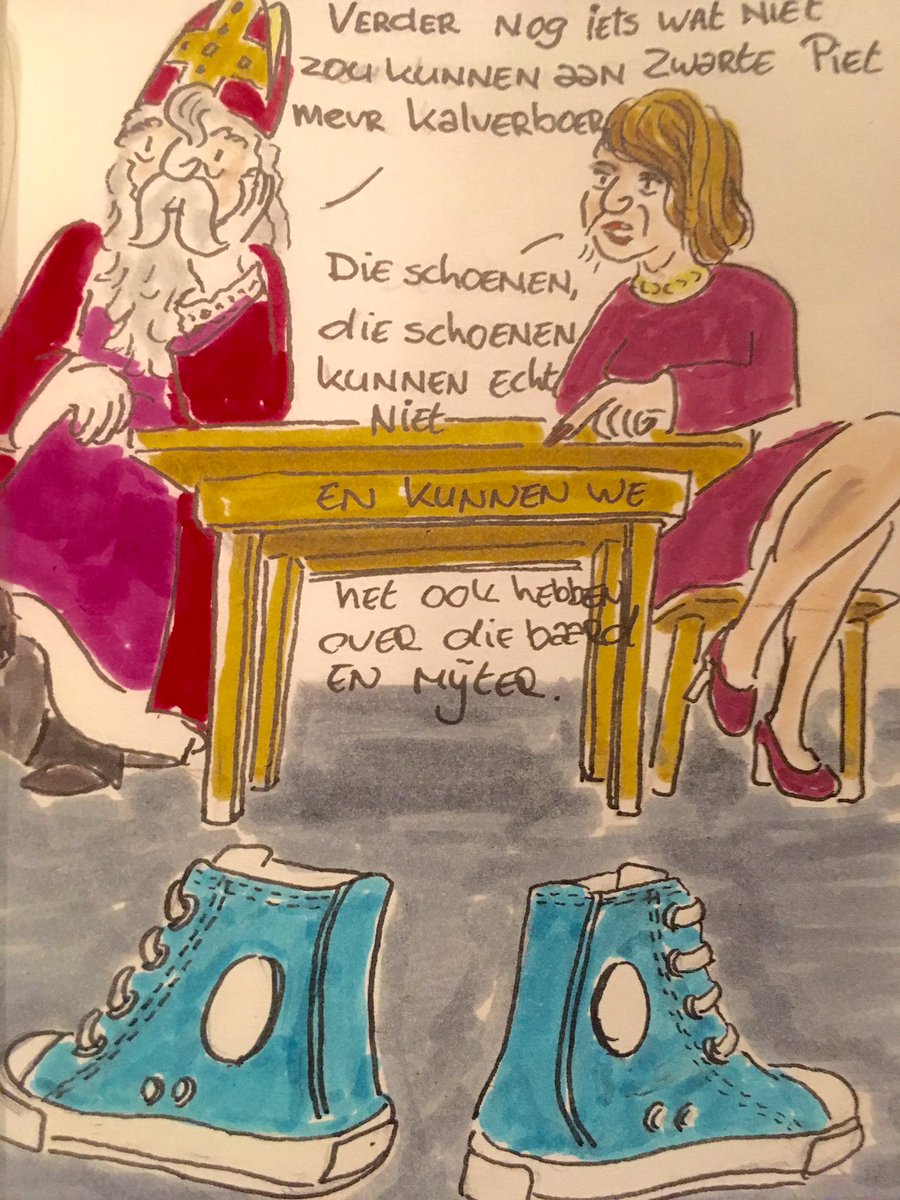 VERDER NOG IETS WAT NIET
ZOU KUNNEN AAN ZWARTE PIET
MEVR KALVERBOER
DIE SCHOENEN,
DIE SCHOENEN
KUNNEN ECHT
NIET
EN KUNNEN WE
HET OOK HEBBEN
OVER DIE BAARD
EN MIJTER.